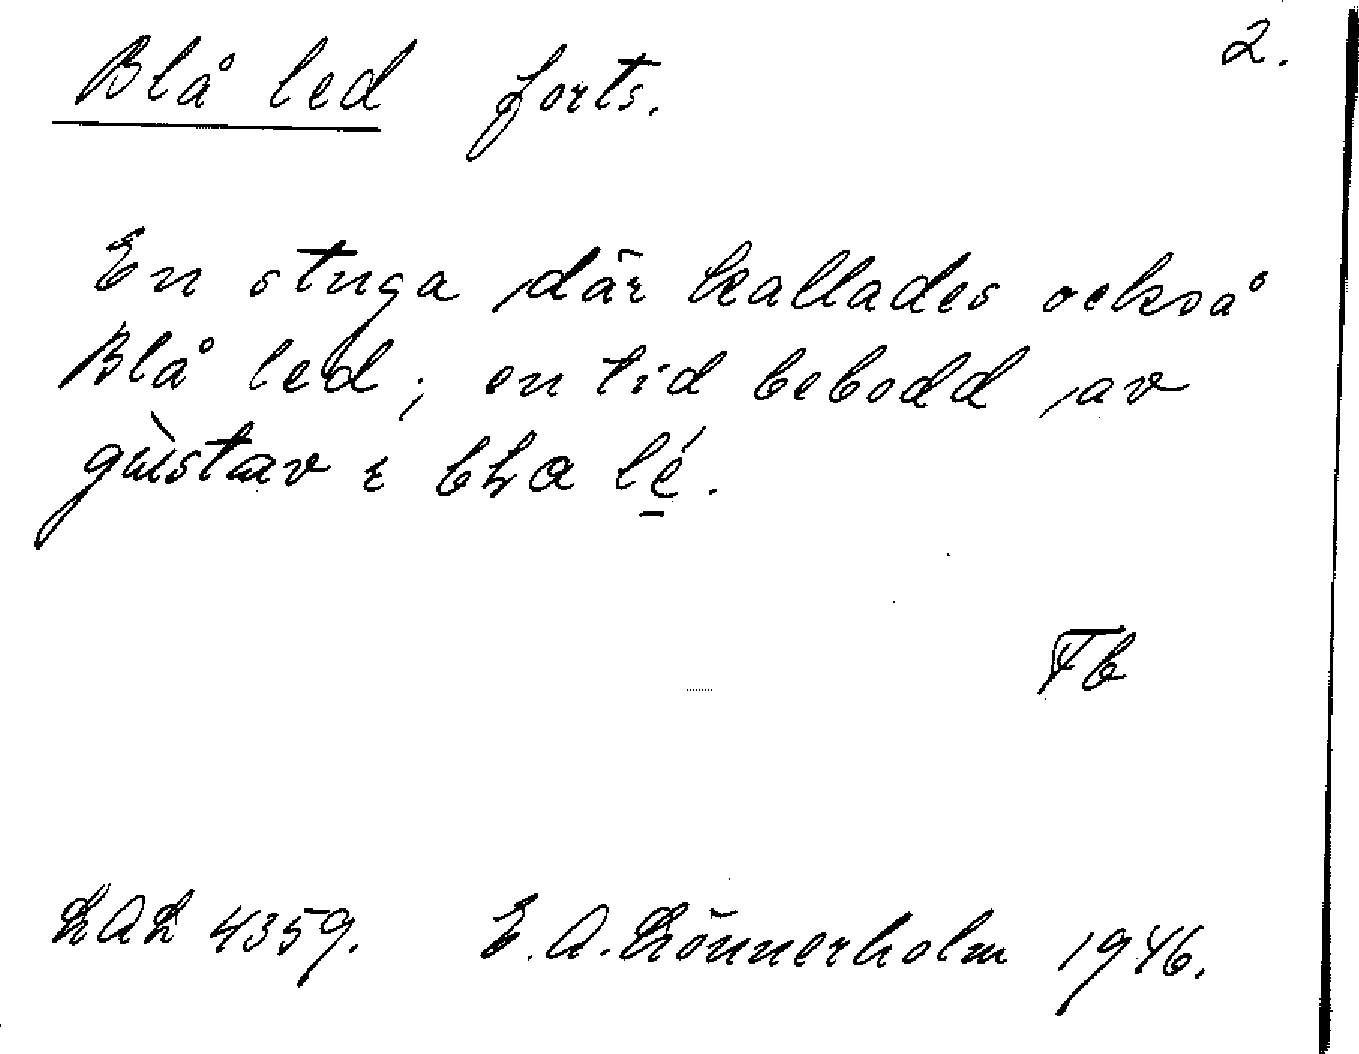 2.
Blå led forts.
En stuga där kallades också
Blå led; en tid bebodd av
gùstav ɪ bɫɑ lé̱.
Fb
LAL 4359. E. A. Lönnerholm 1946.